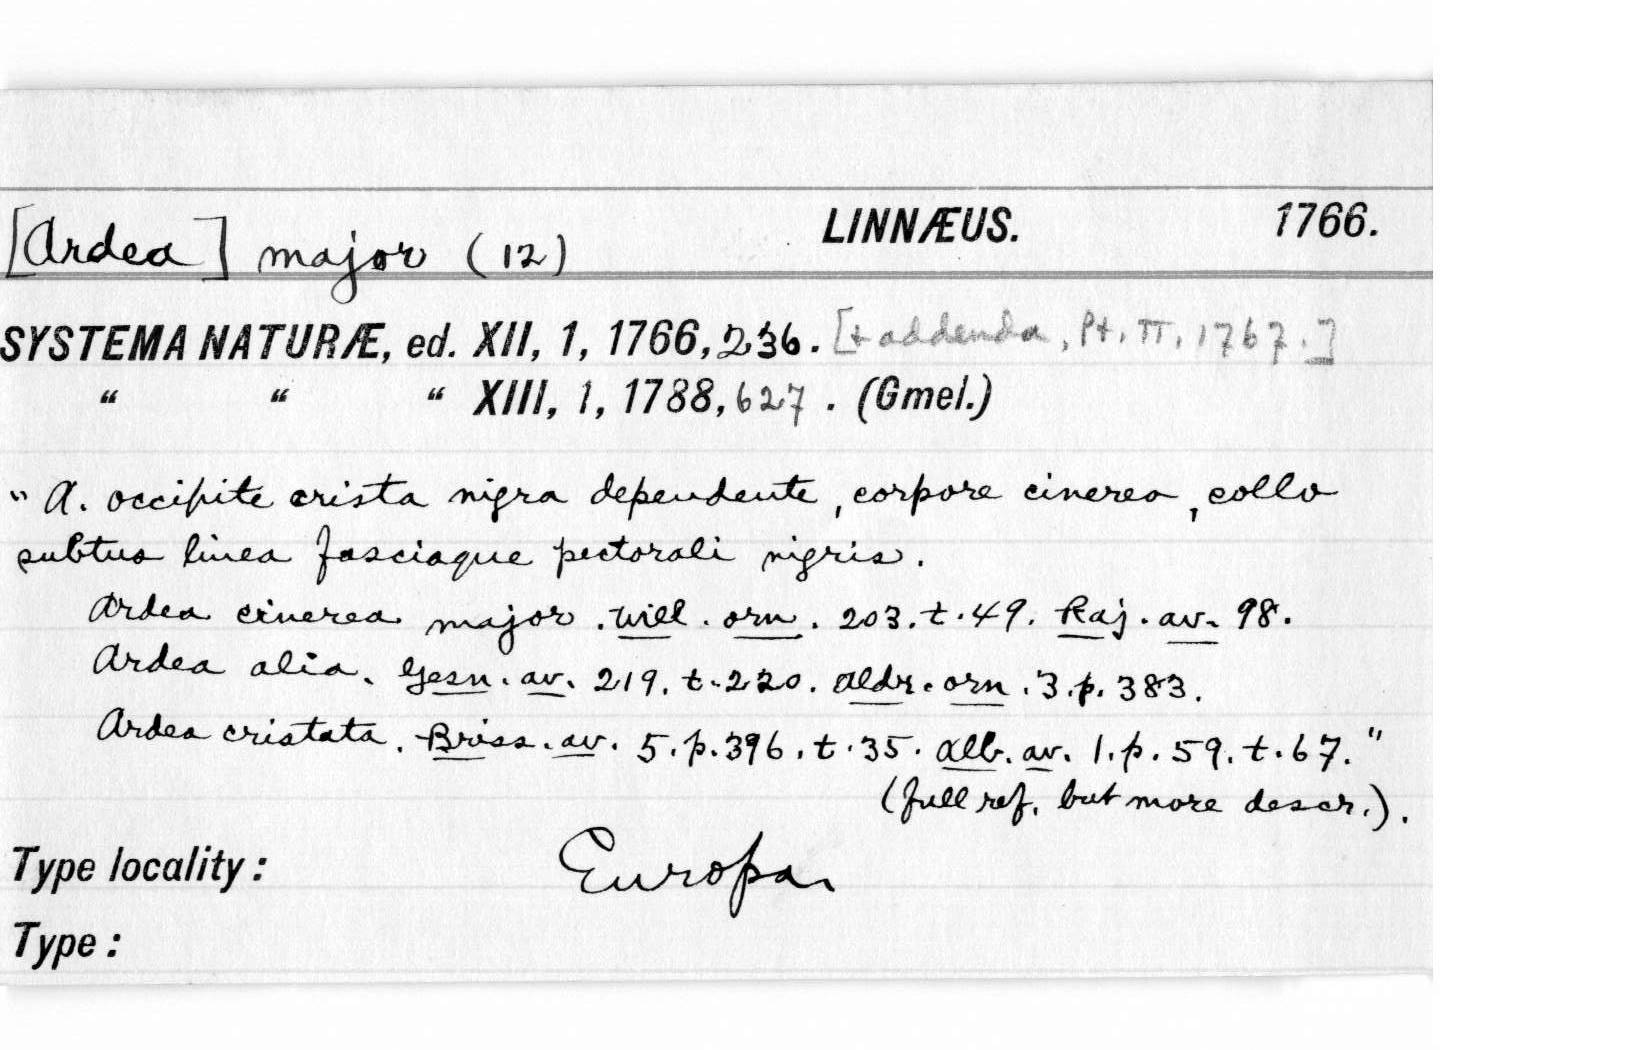 [Ardea] major (12) LINNÆUS. 1766.
SYSTEMA NATURÆ, ed. XII, 1, 1766, 236. [+ addenda, Pt. II, 1767.]
“ “ “ XIII, 1, 1788, 627. (Gmel.)
" A. occipite crista nigra dependente, corpore cinereo, collo
subtus linea fasciaque pectorali nigris.
Ardea cinerea major. Will. orn. 203. t. 49. Raj. av. 98.
Ardea alia. Gesn. av. 219. t. 220. Aldr. orn. 3. p. 383.
Ardea cristata. Briss. av. 5. p. 396. t. 35. Alb. av. 1. p. 59. t. 67."
(full ref. but more descr.).
Type locality: Europa.
Type: